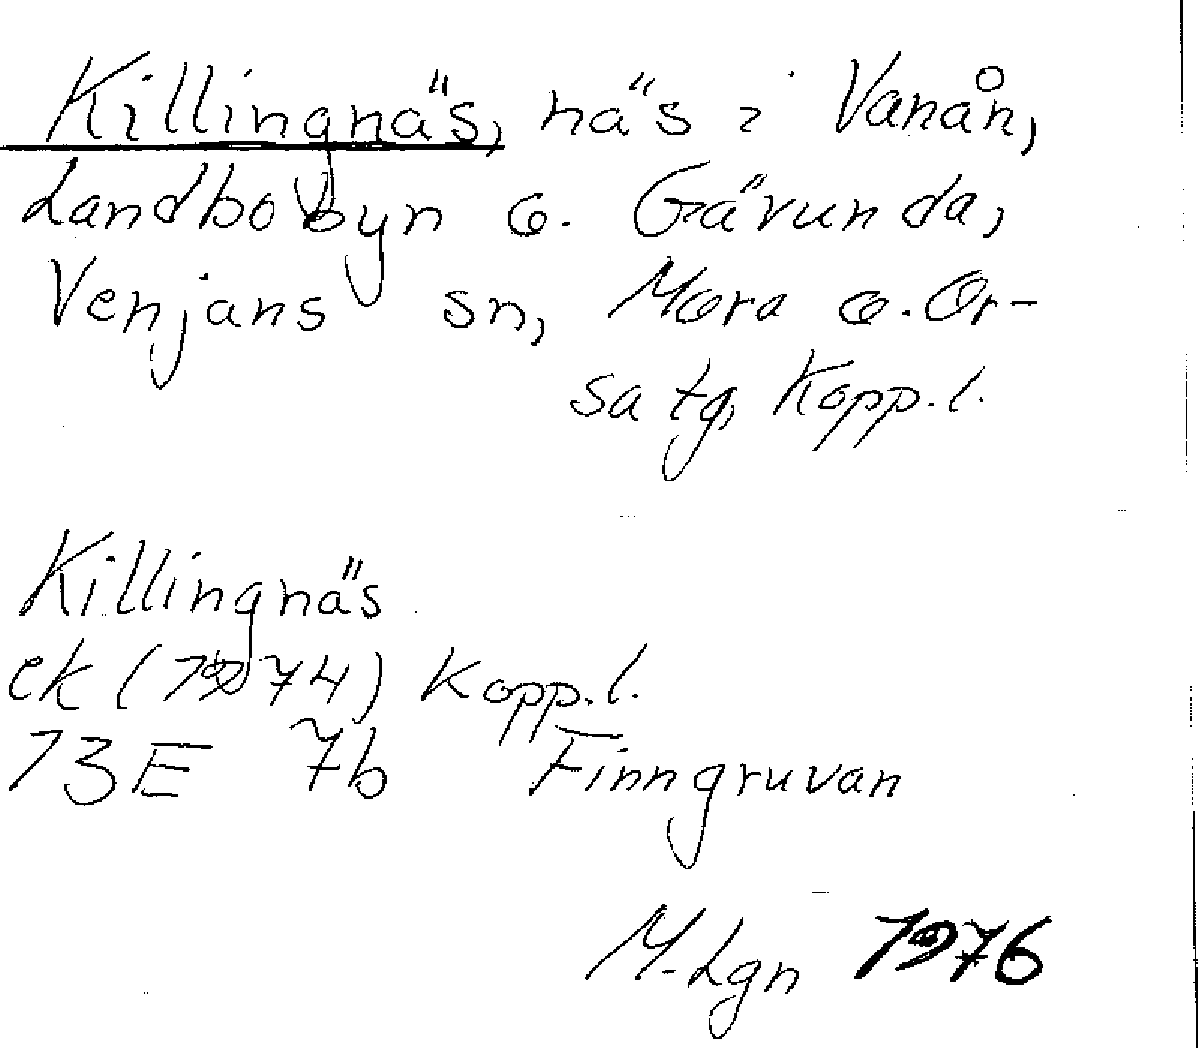 Killingnäs, näs i Vanån,
Landbobyn o. Gävunda,
Venjans sn, Mora o. Or-
sa tg, Kopp.l.
Killingnäs
ek (1974) Kopp.l.
13E 7b Finngruvan
M-Lgn 1976